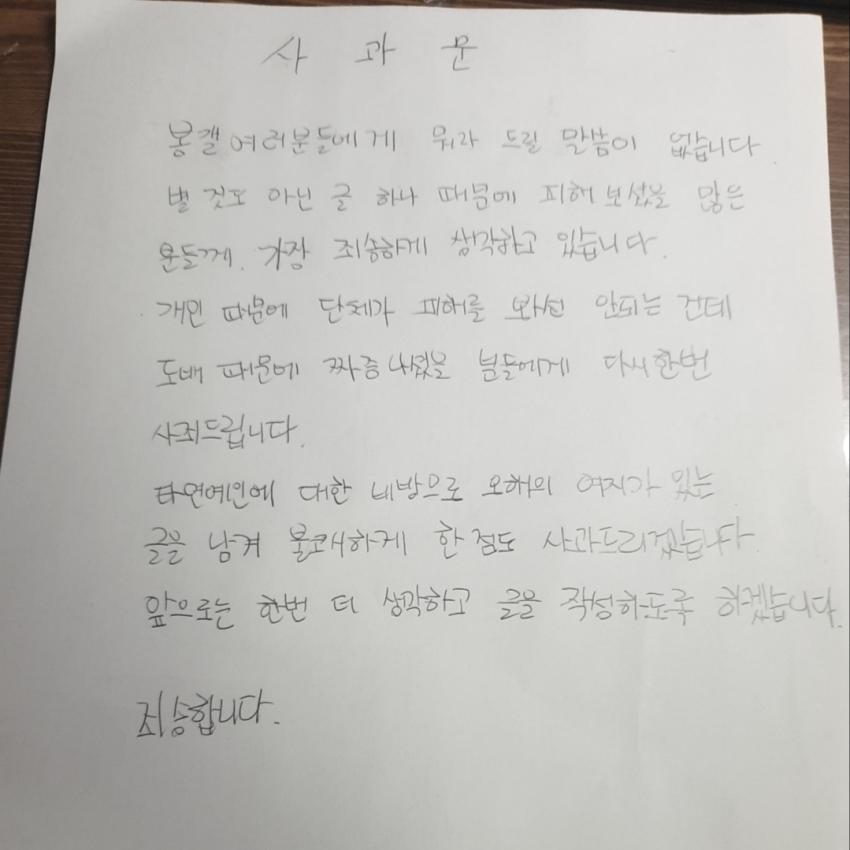 사 과 문
봉갤여러분들에게 뭐라 드릴 말씀이 없습니다.
별 것도 아닌 글 하나 때문에 피해보셨을 많은
분들께. 가장 죄송하게 생각하고 있습니다.
개인 때문에 단체가 피해를 봐선 안되는 건데
도배 때문에 짜증나셨을 분들에게 다시한번
사죄드립니다.
타연예인에 대한 비방으로 오해의 여지가 있는
글을 남겨 불쾌하게 한점도 사과드리겠습니다
앞으로는 한번 더 생각하고 글을 작성하도록 하겠습니다.
죄송합니다.